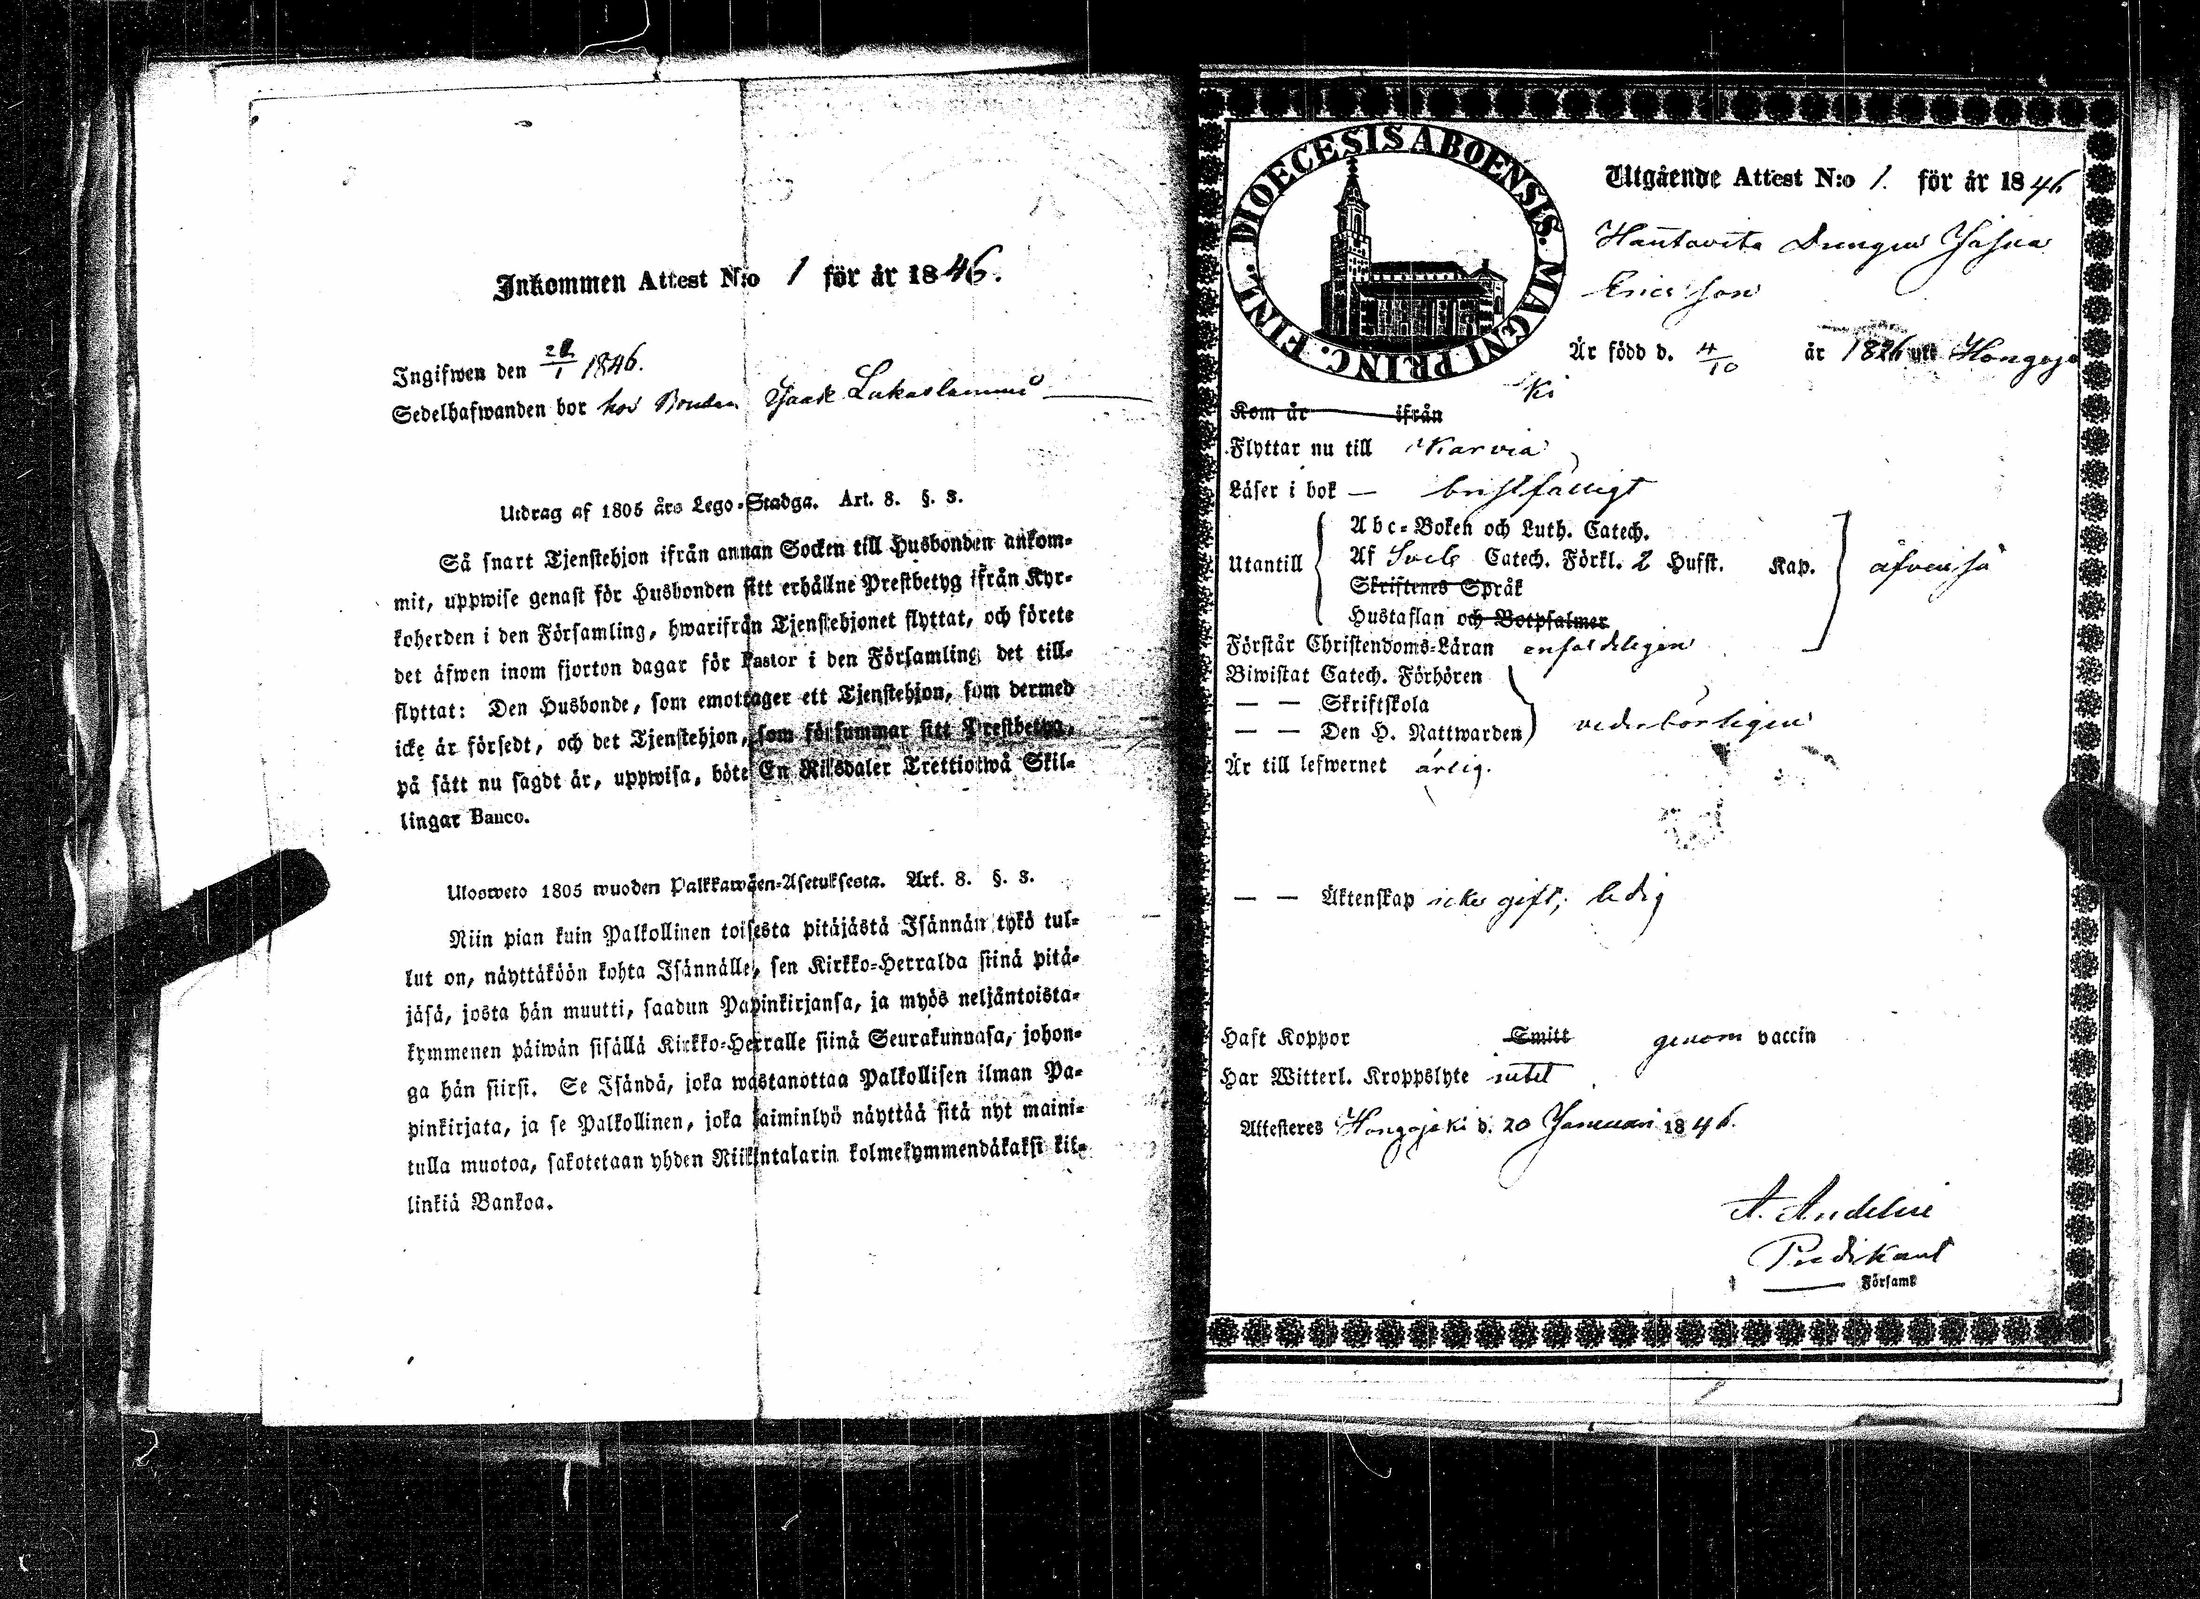 Inkommen Attest N:o 1 för år 1846.
Ingifwen den 1846.
Sedelhafwanden bor hos Bonden Isaak Lukaslammi
Utdrag af 1805 års Lego-Stadga. Art. 8. §. 3.
Så snart Tjenstehjon ifrån annan Socken till Husbonden ankom-
mit, uppwise genast för Husbonden sitt erhållne Prestbetyg ifrån Kyr-
koherden i den Församling, hwarifrån Tjenstehjonet flyttat, och förete
det äfwen inom fjorton dagar för Pastor i den Församling det till-
flyttat: Den Husbonde, som emottager ett Tjenstehjon, som dermed
icke är försedt, och det Tjenstehjon, som försummar sitt Prestbetyg,
på sätt nu sagdt är, uppwisa, böte En Riksdaler Trettiotwå Skil-
lingar Banco.
Ulosweto 1805 wuoden Palkkawäen-Asetuksesta. Art. 8. §. 3.
Niin pian kuin Palkollinen toisesta pitäjästä Isännän tykö tul-
lut on, näyttäköön kohta Isännälle, sen Kirkko-Herralda siinä pitä-
jäsä, josta hän muutti, saadun Papinkirjansa, ja myös neljäntoista-
kymmenen päiwän sisällä Kirkko-Herralle siinä Seurakunnasa, johon-
ga hän siirsi. Se Isändä, joka wastanottaa Palkollisen ilman Pa-
pinkirjata, ja se Palkollinen, joka laiminlyö näyttää sitä nyt maini-
tulla muotoa, sakotetaan yhden Riikintalarin kolmekymmendäkaksi kil-
linkiä Bankoa.
DIOECESIS ABOENSIS. MAGNI PRINC. FINL.
Utgående Attest N:o 1. för år 1846
Drengen
Ericsson
Är född d. 4/10 år 1826 uti Hongojo
ki
Kom år ifrån
Flyttar nu till Karvia
Läser i bok — bristfälligt
Utantill
Abc-Boken och Luth. Catech.
Af Sveb. Catech. Förkl. 2 Hufst. Kap.
Skriftenes Språk
Hustaflan och Botpsalmer
äfvenså
Förstår Christendoms-Läran enfaldeligen
Biwistat Catech. Förhören
— — Skriftskola
— — Den H. Nattwarden
vederbörligen
Är till lefwernet ärlig.
— — Äktenskap icke gift, ledig
Haft Koppor Smitt genom vaccin
Har Witterl. Kroppslyte intet
Attesteres Hongojoki d. 20 Januari 1846.
A.
Predikant
Församl